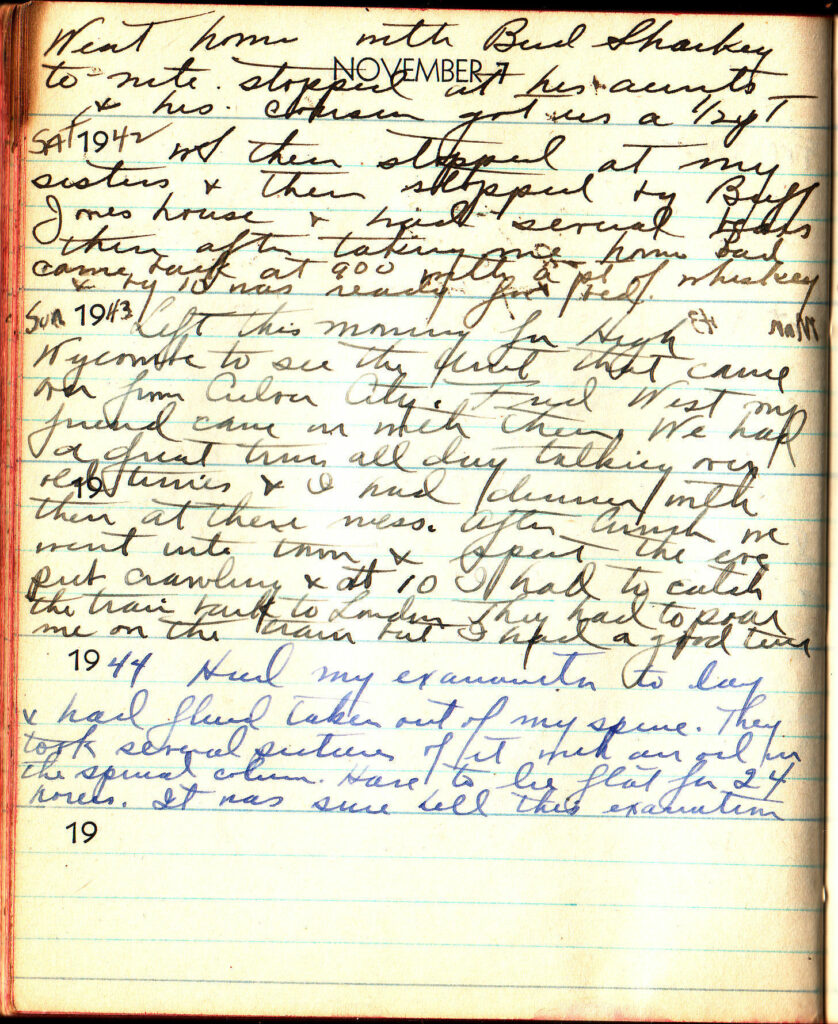 Went home with Bud Sharkey
NOVEMBER 7
to nite. stopped at his aunts
& his cousin got us a 1/2 pt
SAT 1942 of then stopped at my
sisters & then stopped by Buff
Jones house & had several
then after taking me home Bud
came back at 900 with a pt of whiskey
& by 10 was ready for bed.
Sun 1943 Left this morning for High
Wycombe to see the Unit that came
over from Culver City. Fred West my
friend came in with them. We had
a great time all day talking over
old times & I had dinner with
19
them at there mess. After lunch we
went into town & spent the eve
pub crawling & at 10 I had to catch
the train back to London They had to pour
me on the train but I had a good time
1944 Had my examination to day
& had fluid taken out of my spine. They
took several pictures of it with an oil in
the spinal column. Have to lie flat for 24
hours. It was sure hell this
19